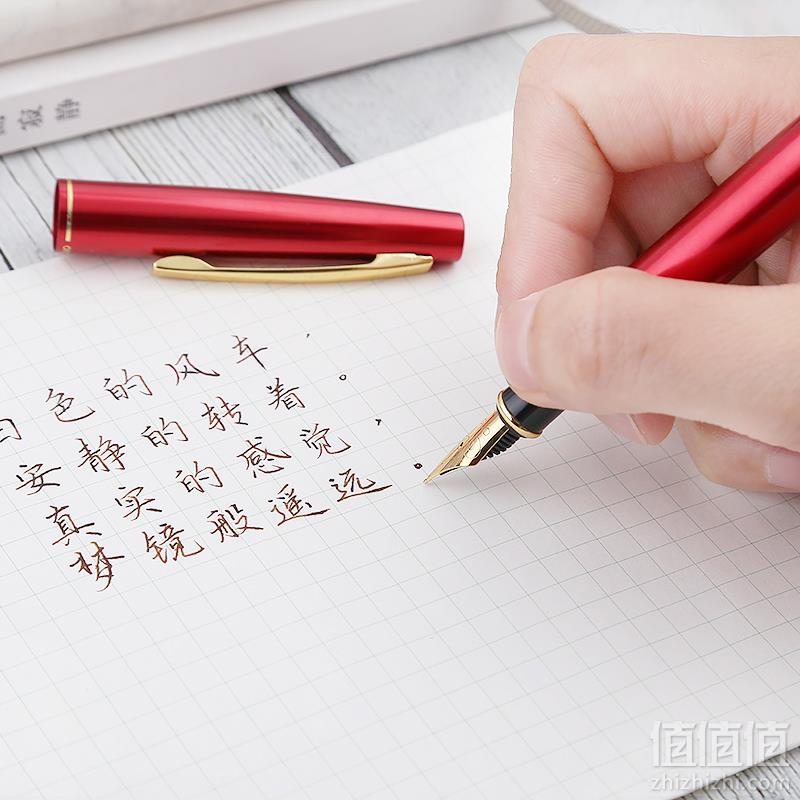 寂静
白色的风车，
安静的转着。
真实的感觉，
梦镜般遥远。
值值值
zhizhizhi.com